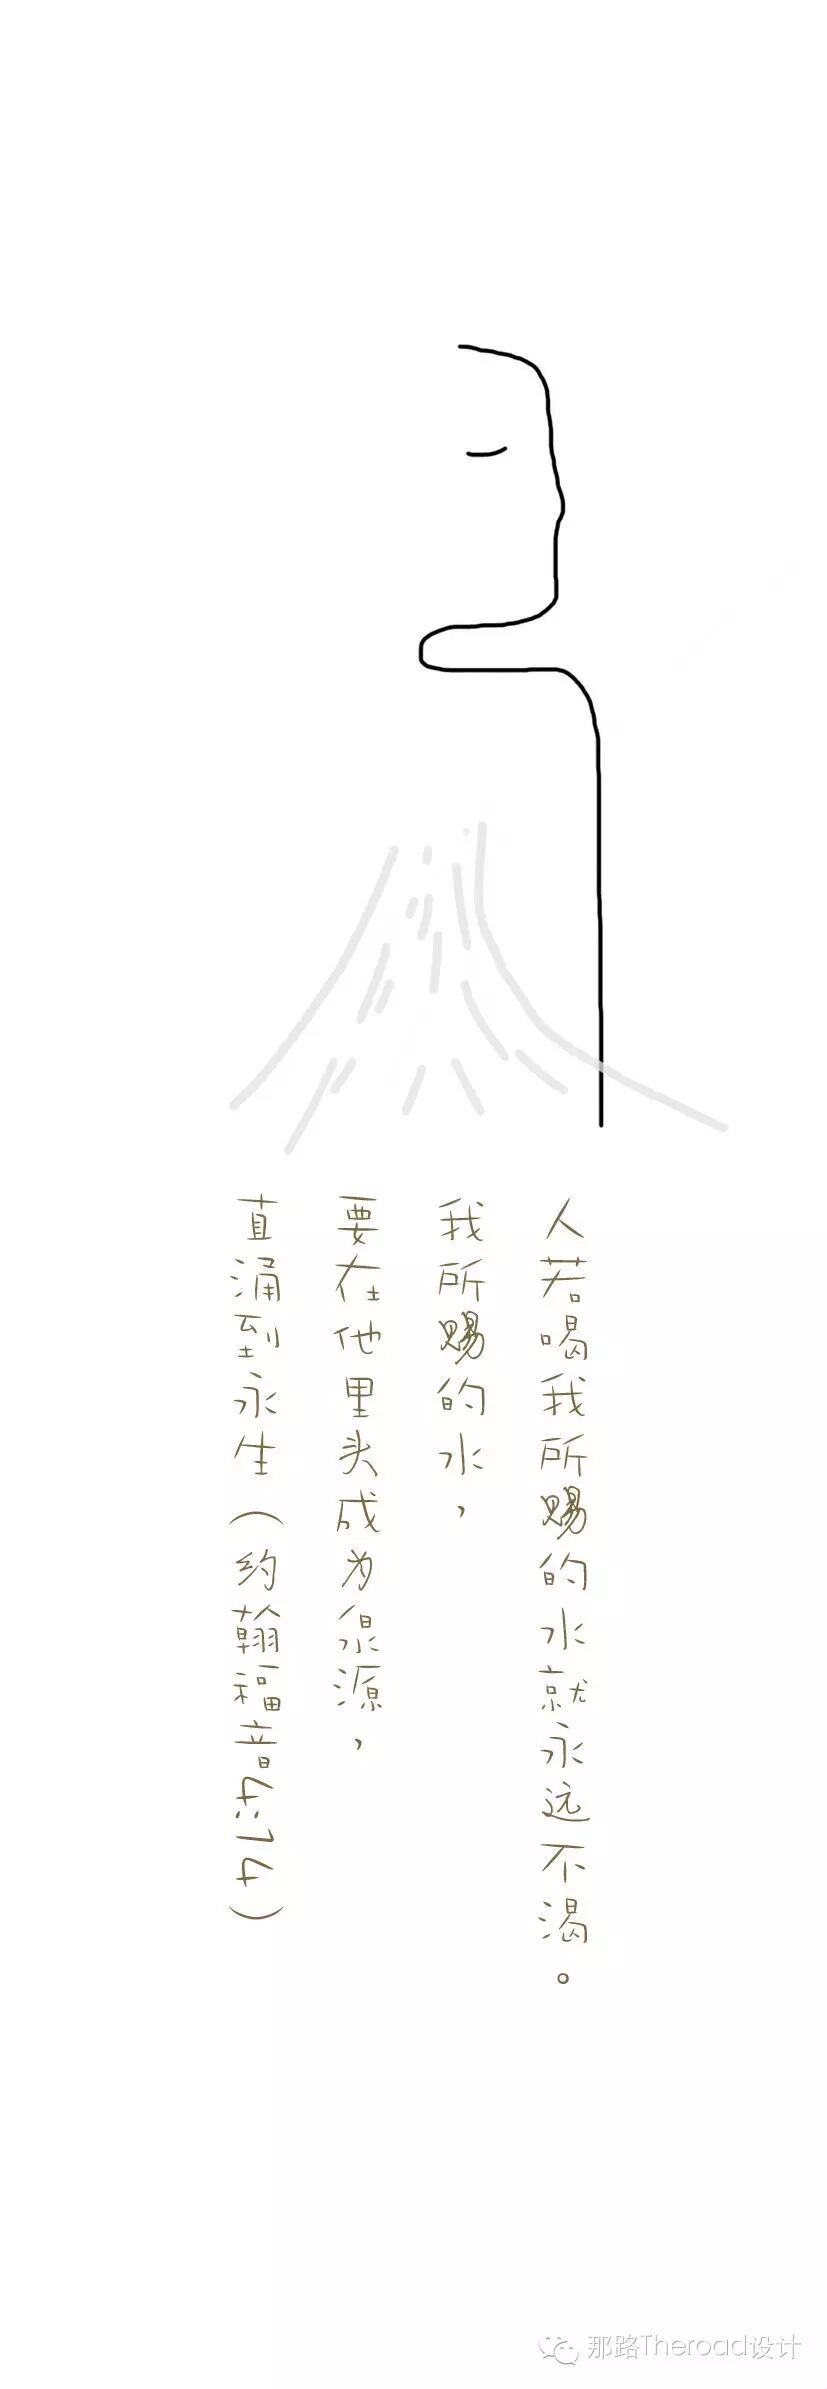 人若喝我所赐的水就永远不渴。
我所赐的水，
要在他里头成为泉源，
直涌到永生（约翰福音4:14）
那路Theroad设计